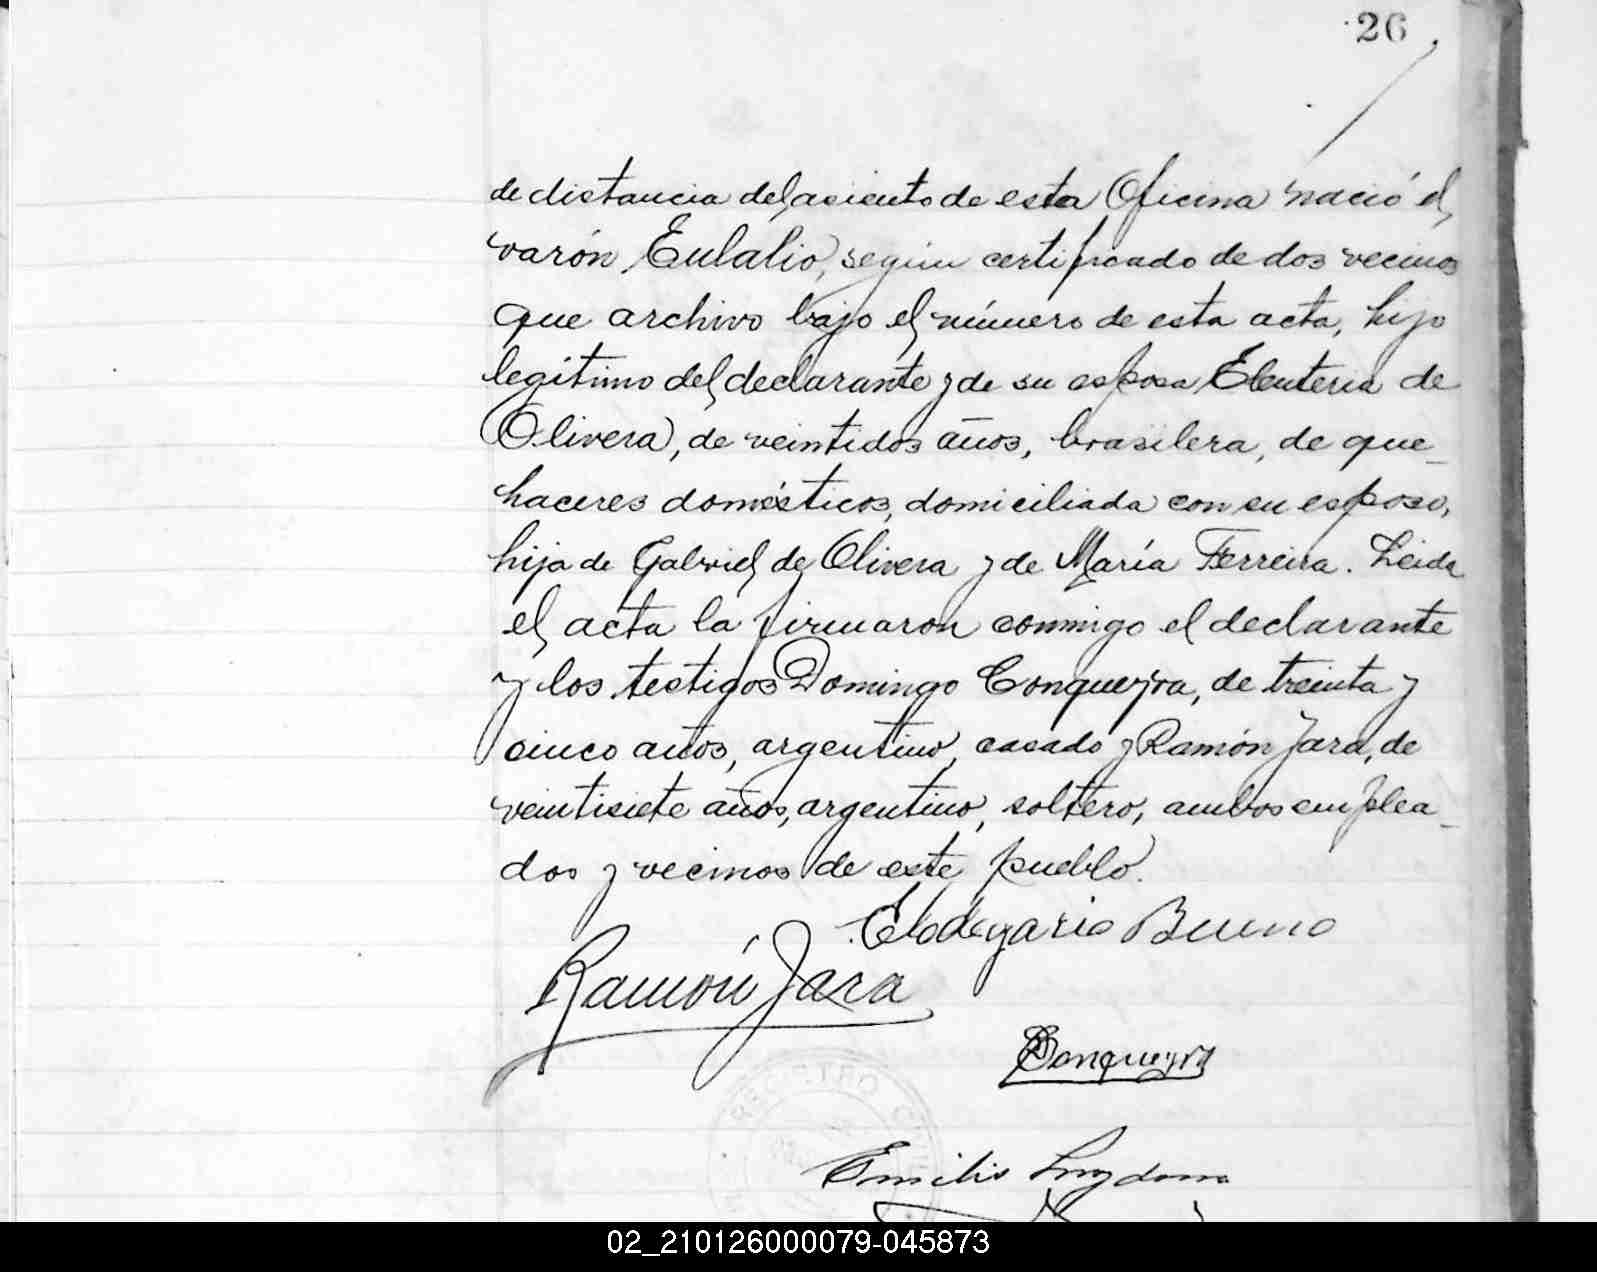 26
de distancia del asiento de esta Oficina nació el
varón Eulalio, según certificado de dos vecinos
que archivo bajo el número de esta acta, hijo
legítimo del declarante y de su esposa Eleuteria de
Olivera, de veintidos años, brasilera, de que_
haceres domésticos, domiciliada con su esposo,
hija de Gabriel de Olivera y de María Ferreira. Leida
el acta la firmaron conmigo el declarante
y los testigos Domingo Conqueyra, de treinta y
cinco años, argentino, casado y Ramón Jara, de
veintisiete años, argentino, soltero, ambos emplea_
dos y vecinos de este pueblo.
Bueno
Ramón Jara
Conqueyra
REGISTRO
Emilio
02_210126000079-045873